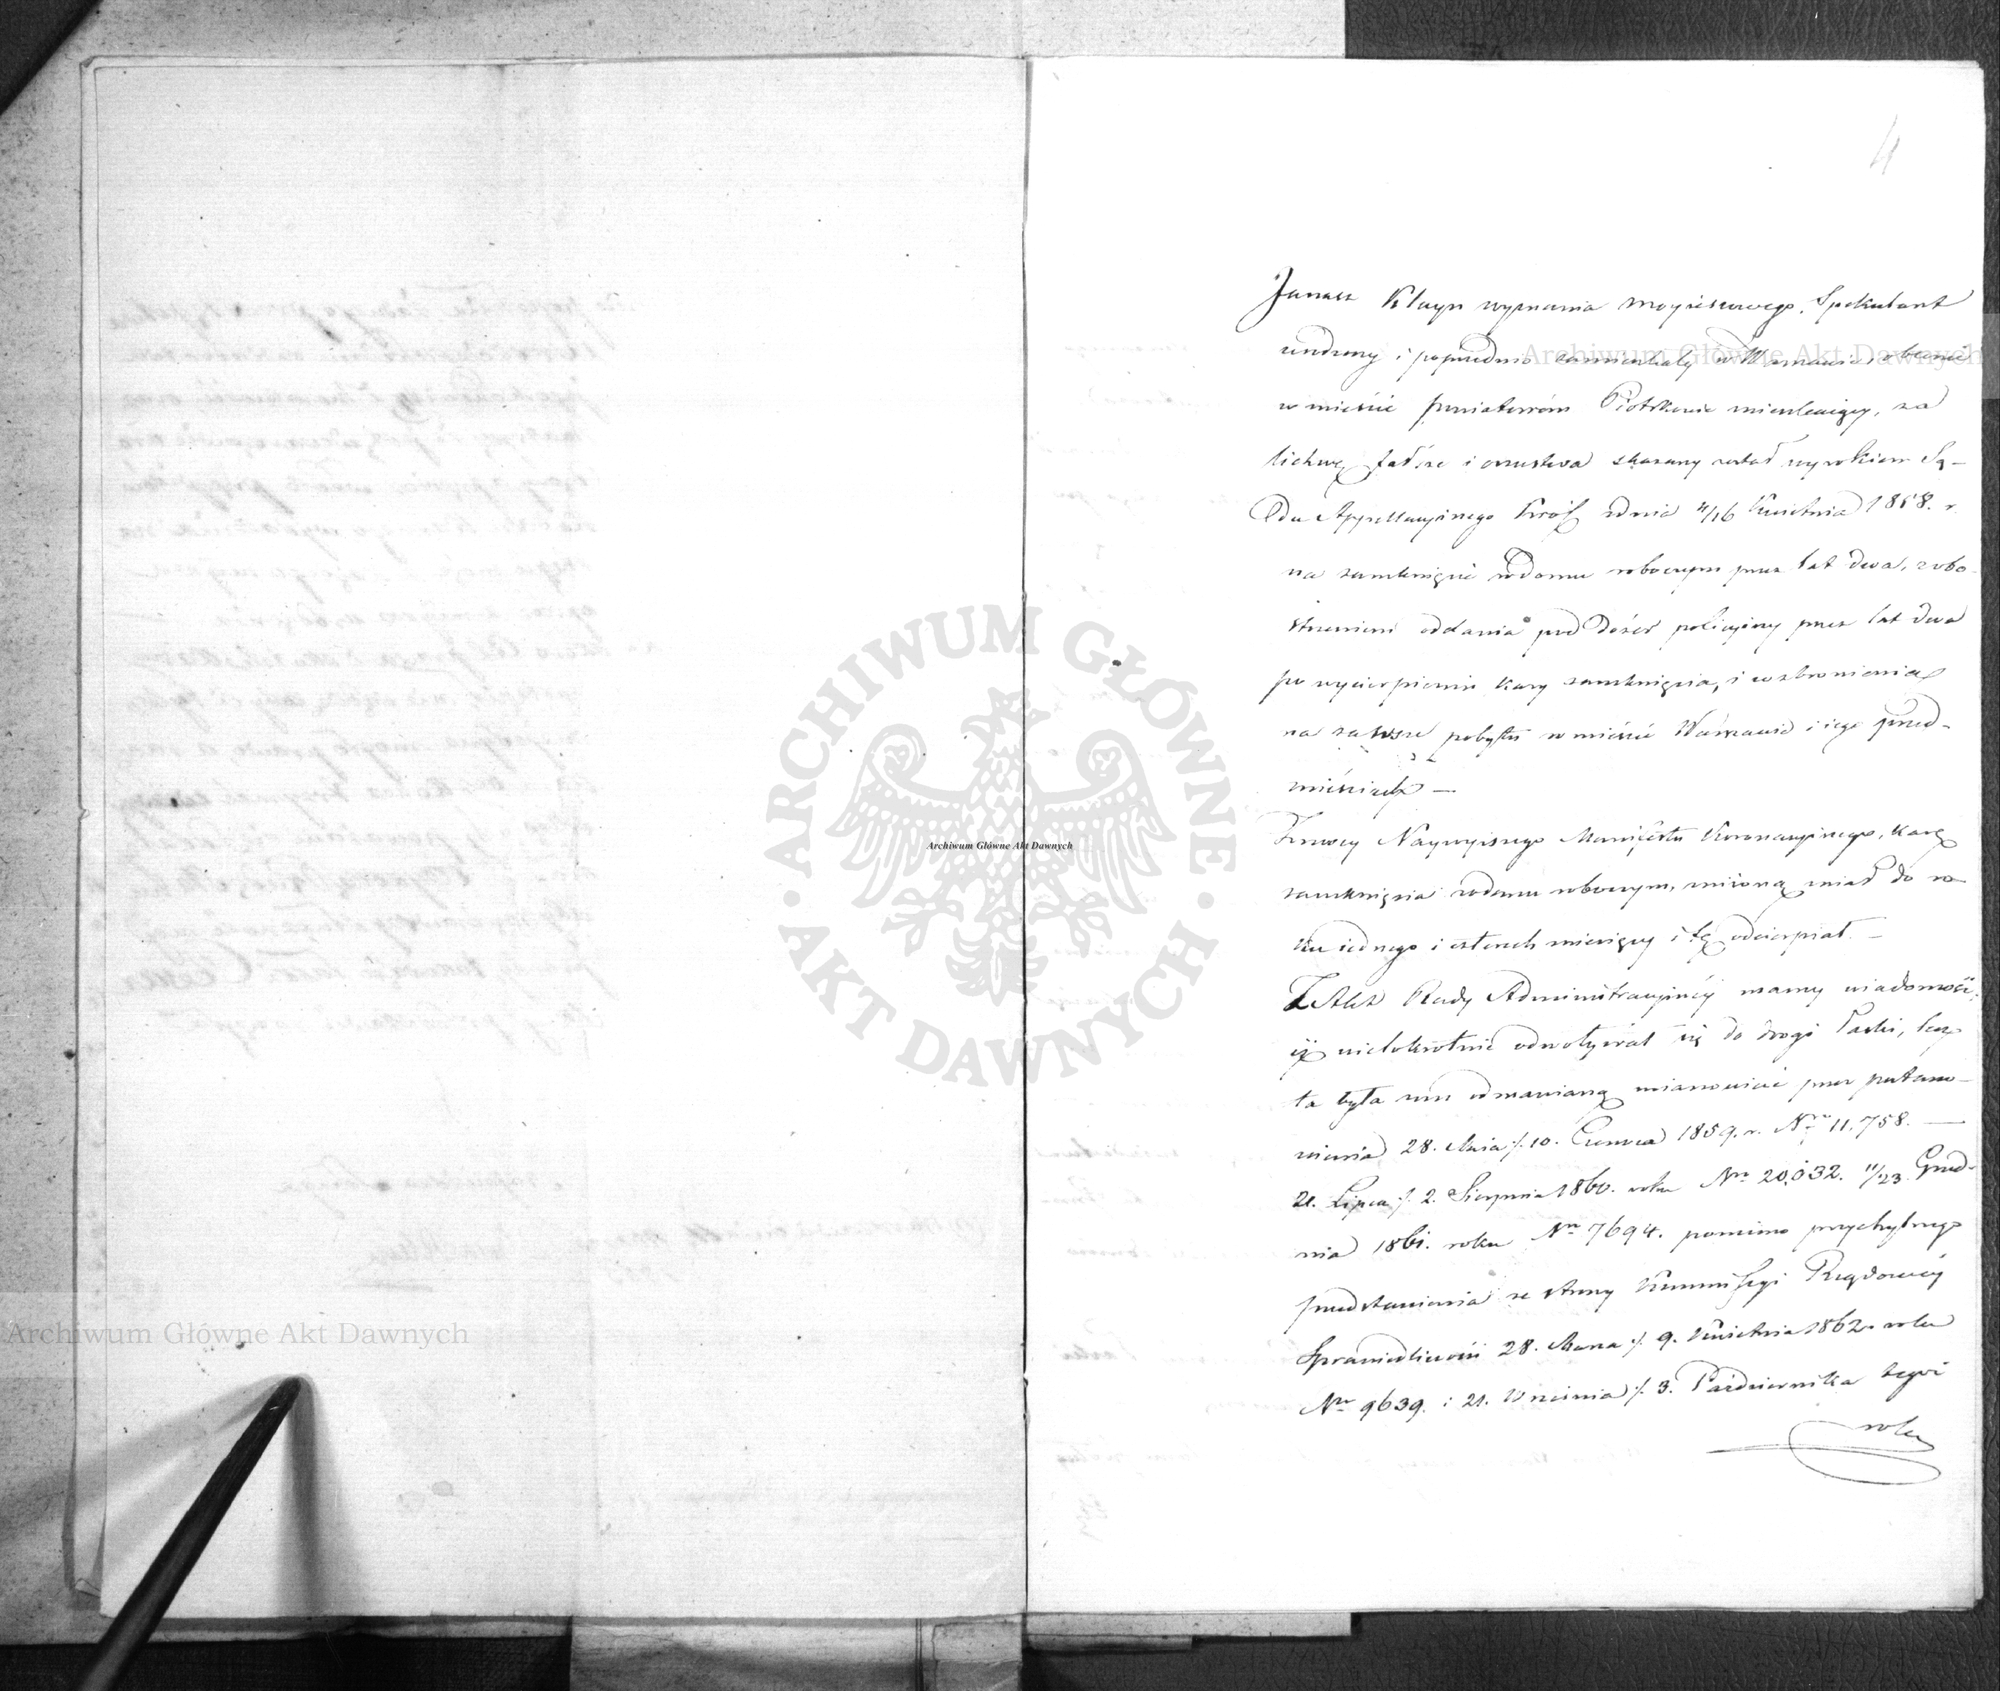 4
Janasz Klayn wyznania mojżeszowego, Spekulant
urodzony i poprzednio zamieszkały w Warszawie, obecnie
w mieście powiatowém Piotrkowie mieszkaiący, za
lichwę, fałsze i oszustwa skazany został wyrokiem Są-
du Appellacyjnego Król z dnia 4/16 Kwietnia 1858. r.
na zamknięcie w domu roboczym przez lat dwa, z obo-
strzeniem oddania pod dozór policyjny przez lat dwa
po wycierpieniu kary zamknięcia, i wzbronienia
na zawsze pobytu w mieście Warszawie i iego przed-
mieściach —
Z mocy Naywyższego Manifestu Koronacyjnego, karę
zamknięcia w domu roboczym, zniżoną miał do ro-
ku iednego i czterech miesięcy i tę odcierpiał. —
Z Akt Rady Administracyjnéy mamy wiadomość,
iż wielokrotnie odwoływał się do drogi Łaski, lecz
ta była mu odmawianą mianowicie przez postano-
wienia 28. Maia /. 10. Czerwca 1859. r. Nro 11.758. —
21. Lipca /. 2. Sierpnia 1860. roku Nro 20,032. 11/23. Grud-
nia 1861. roku Nro 7694. pomimo przychylnego
przedstawienia ze strony Kommissyi Rządowéy
Sprawiedliwości 28. Marca /. 9. Kwietnia 1862. roku
Nro 9639. i 21. Września /. 3. Października tegoż
roku
Archiwum Główne Akt Dawnych
Archiwum Główne Akt Dawnych
Archiwum Główne Akt Dawnych
ARCHIWUM GŁÓWNE
AKT DAWNYCH